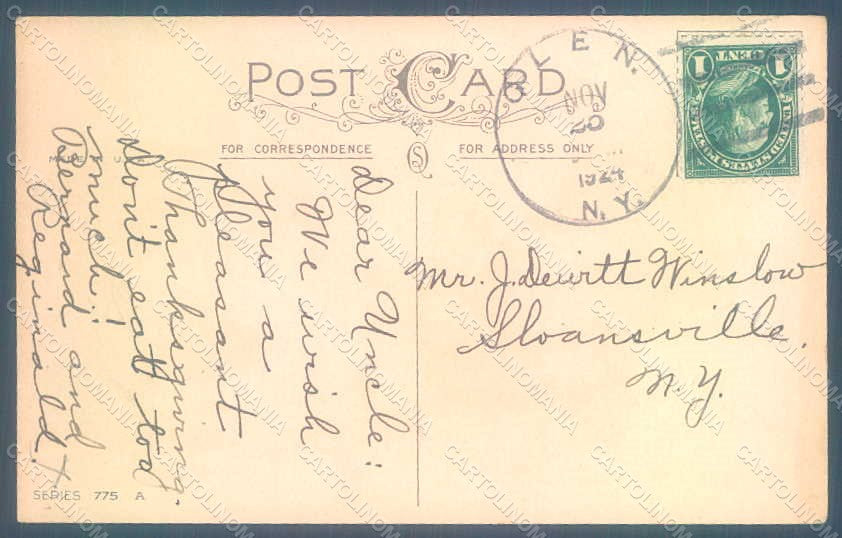 POST CARD
FOR CORRESPONDENCE
FOR ADDRESS ONLY
LEN.
NOV
20
1924
N.Y.
1 CENT 1
UNITED STATES POSTAGE
Dear Uncle:
We wish
you a
pleasant
Thanksgiving.
Don't eat too
much!!
Bernard and
Reginald. X
Mr. J. Dewitt Winslow
Sloansville.
N.Y.
MADE U.
SERIES 775 A
CARTOLINOMANIA